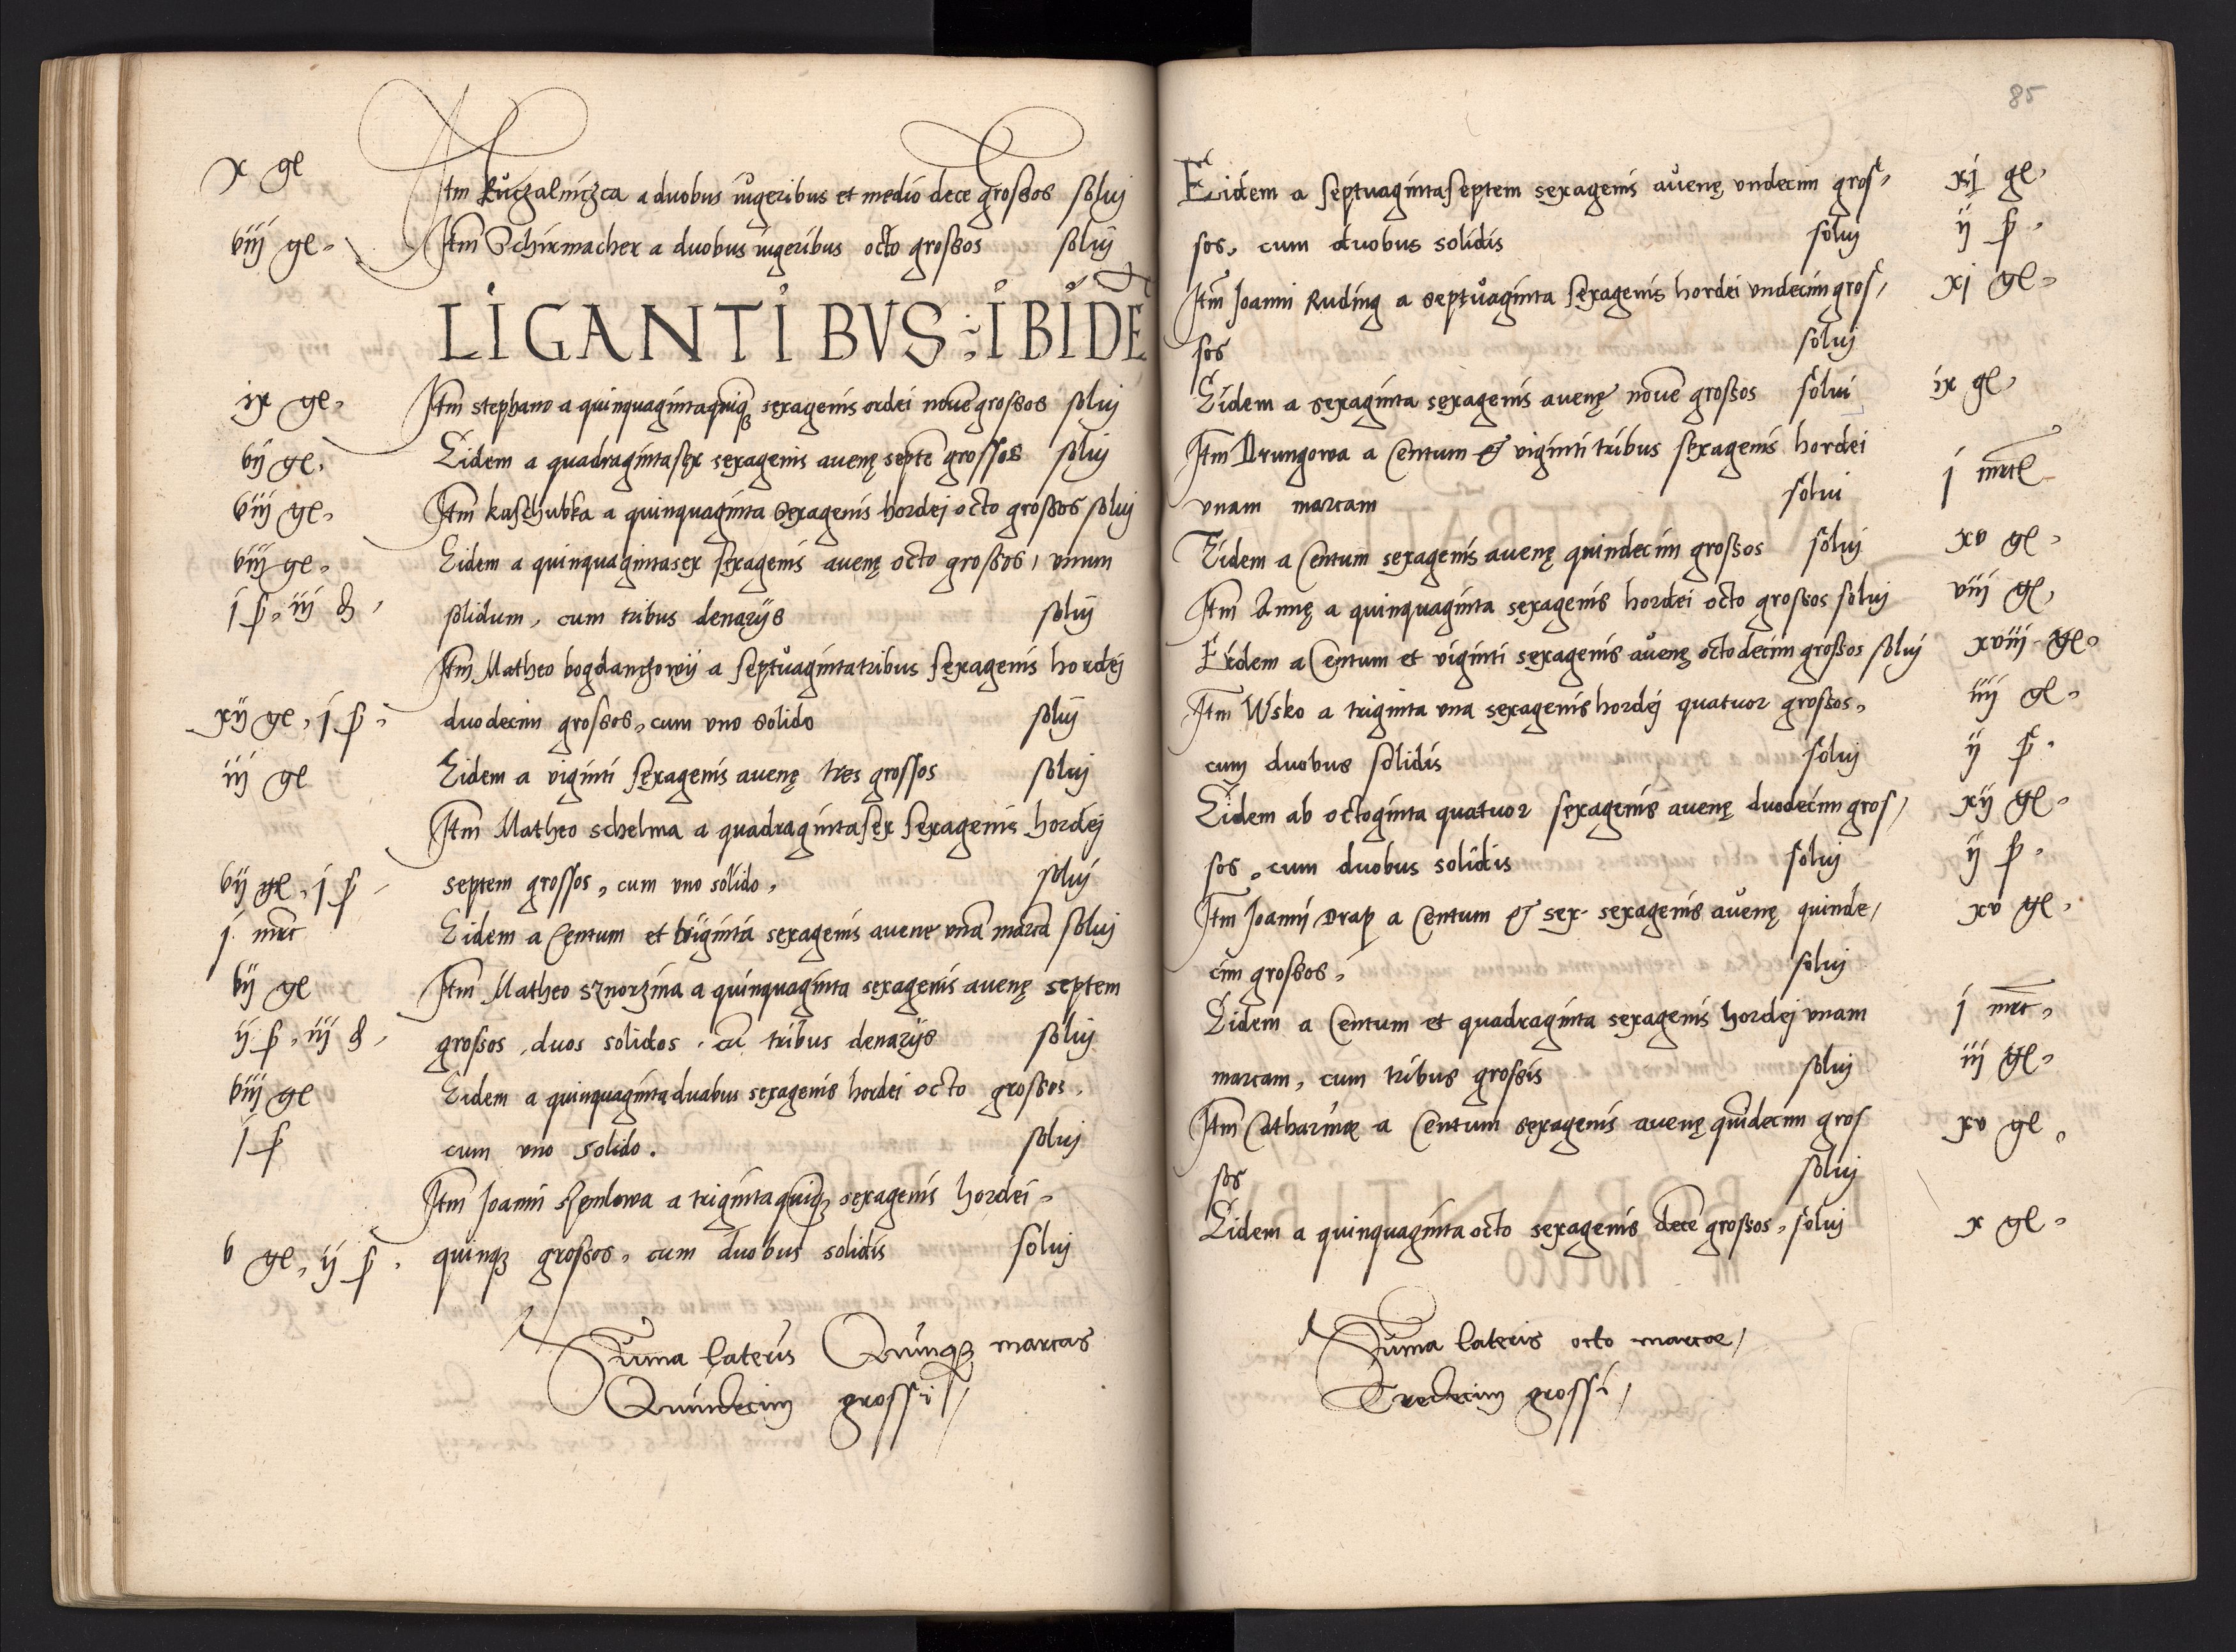 x gl Itm Kuczalniczca a duobus iugeribus et medio dece grossos solui
viij gl Itm Schirmacher a duobus iugeribus octo grossos solui
LIGANTIBVS IBIDE
ix gl Itm stephano a quinquagintaquiq sexagenis ordei nouē grossos solui
vij gl Eidem a quadragintasex sexagenis auenę septē grossos solui
viij gl Itm kaschubka a quinquaginta sexagenis hordei octo grossos solui
viij gl Eidem a quinquagintasex sexagenis auenę octo grossos, vnum
j ß, iij ₰ solidum, cum tribus denarijs solui
Itm Matheo bogdanczowij a septuagintatribus sexagenis hordej
xij gl, j ß duodecim grossos, cum vno solido solui
iij gl Eidem a viginti sexagenis auenę tres grossos solui
Itm Matheo schelma a quadragintasex sexagenis hordej
vij gl, j ß septem grossos, cum vno solido, solui
j mrc Eidem a Centum et viginta sexagenis auene vnā marcā solui
vij gl Itm Matheo sznorzina a quinquaginta sexagenis auenę septem
ij ß, iij ₰ grossos, duos solidos, cū tribus denarijs solui
viij gl Eidem a quinquagintaduabus sexagenis hordei octo grossos,
j ß cum vno solido. solui
Itm Joanni szemlowa a trigintaquiq sexagenis hordei
v gl, ij ß quinqȝ grossos, cum duobus solidis solui
Suma lateris Quinqȝ marcas
Quindecim grossi
85
Eidem a septuagintaseptem sexagenis auenę vndecim gros, xj gl
sos, cum duobus solidis solui ij ß
Itm Joanni Ruding a septuaginta sexagenis hordei vndecim gros, xj gl
sos solui
Eidem a sexaginta sexagenis auenę nouē grossos solui ix gl
Itm Drungowa a Centum & viginti tribus sexagenis hordei
vnam marcam solui j mrc
Eidem a Centum sexagenis auenę quindecim grossos solui xv gl
Itm Annę a quinquaginta sexagenis hordei octo grossos solui viij gl
Eidem a Centum et viginti sexagenis auenę octodecim grossos solui xviij gl
Itm Wsko a triginta vna sexagenis hordej quatuor grossos, iiij gl
cum duobus solidis solui ij ß
Eidem ab octoginta quatuor sexagenis auenę duodecim gros, xij gl
sos, cum duobus solidis solui ij ß
Itm Joanni Drap a Centum & sex sexagenis auenę quinde, xv gl
cim grossos, solui
Eidem a Centum et quadraginta sexagenis hordej vnam j mrc
marcam, cum tribus grossis solui iij gl
Itm Catharinæ a Centum sexagenis auenę quīdecim gros xv gl
sos solui
Eidem a quinquaginta octo sexagenis decē grossos, solui x gl
Suma lateris octo marcae,
Tredecim grossi,